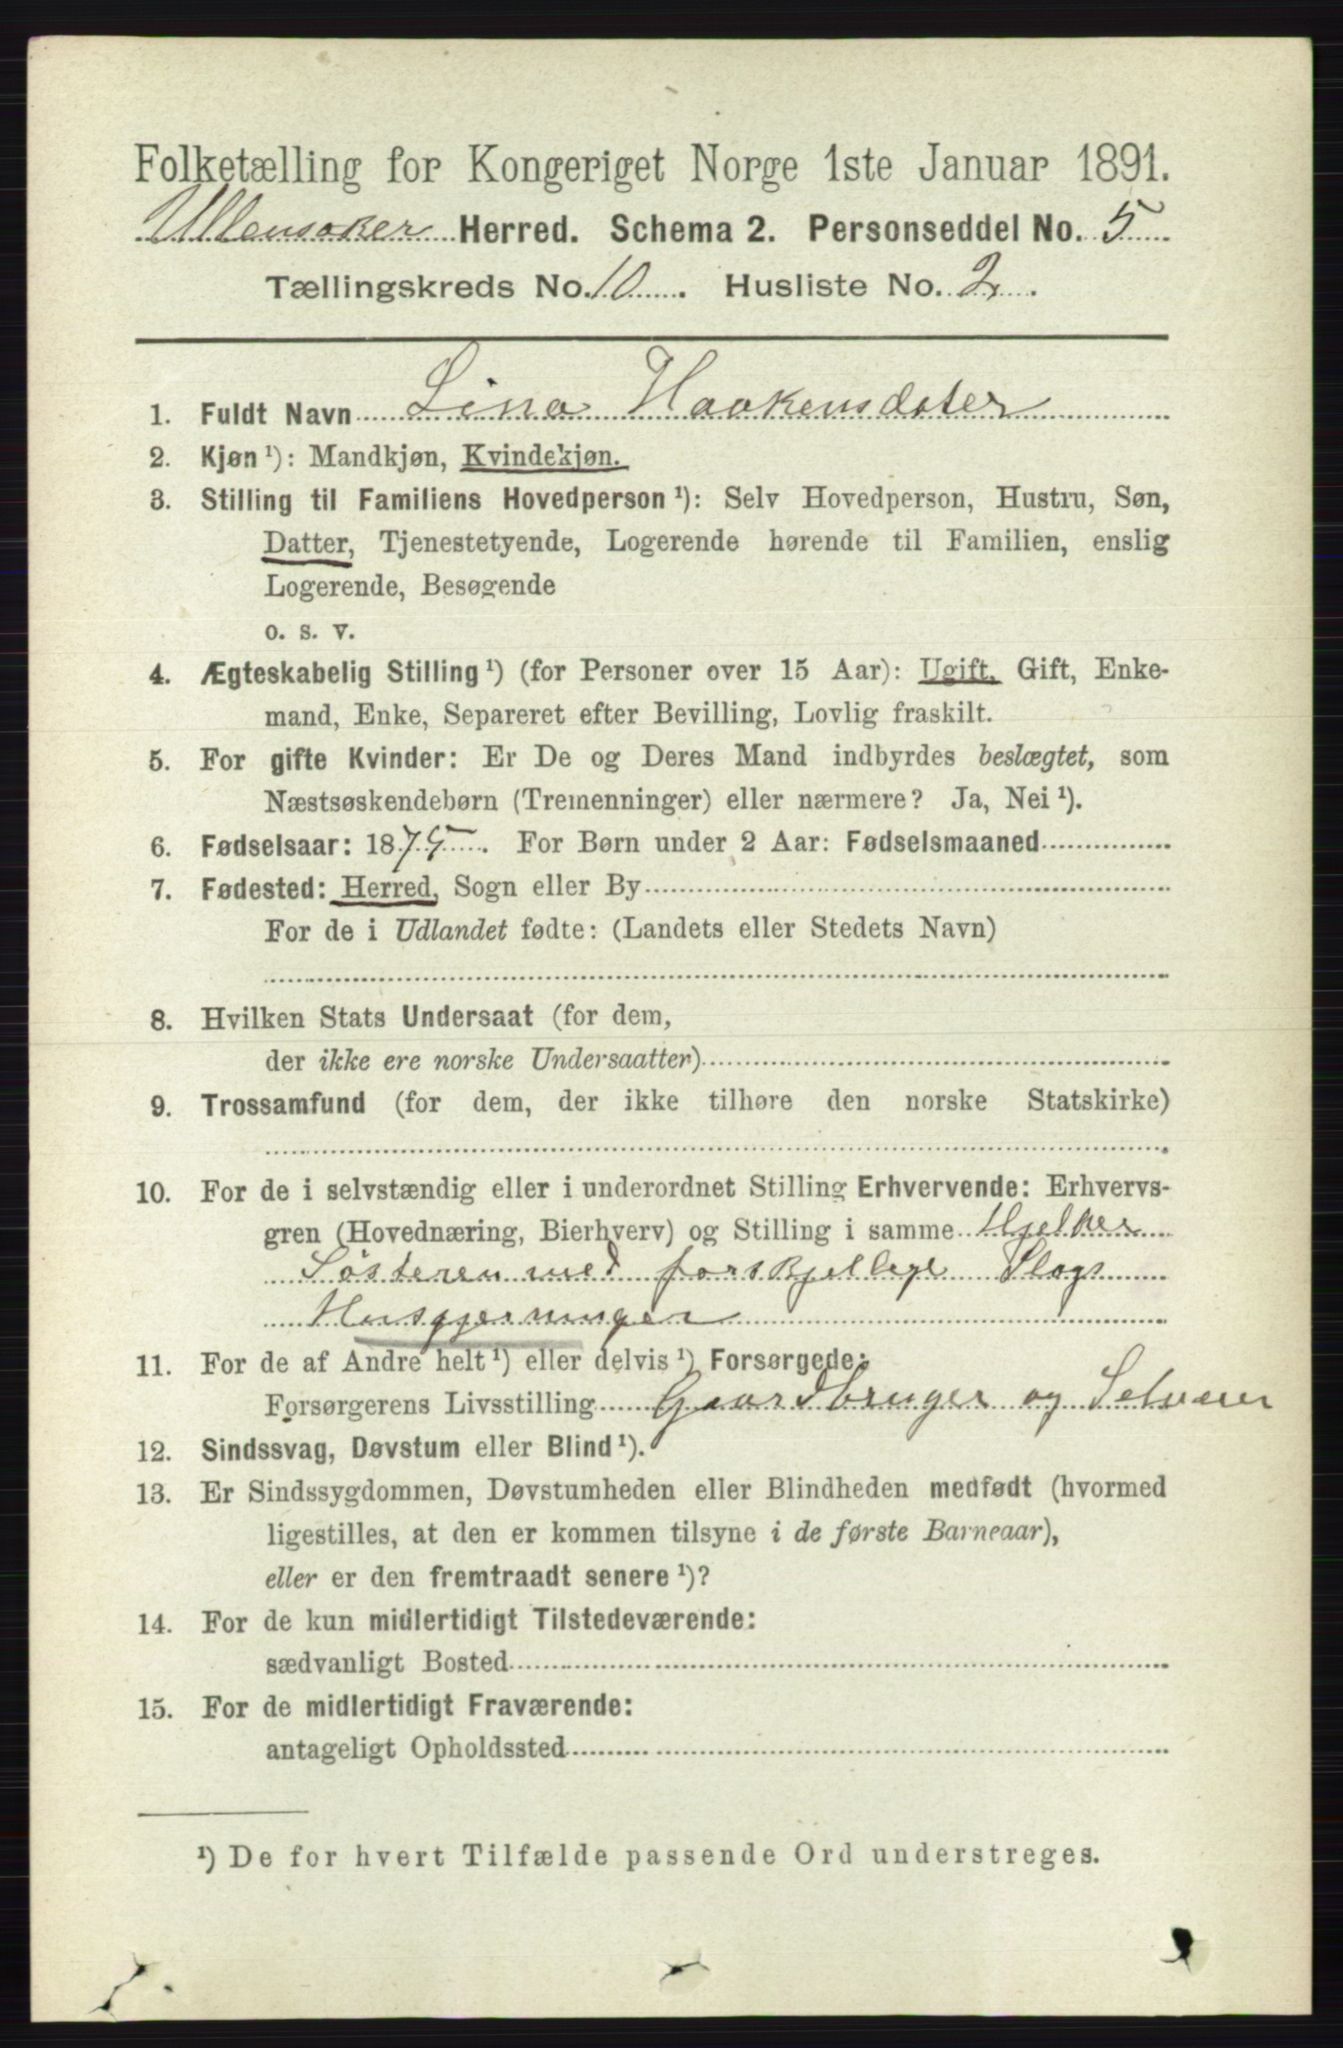 Folketælling for Kongeriget Norge 1ste Januar 1891.
Ullensaker Herred. Schema 2. Personseddel No. 5
Tællingskreds No. 10. Husliste No. 2.
1. Fuldt Navn Lina Haakensdater
2. Kjøn ¹): Mandkjøn, Kvindekjøn.
3. Stilling til Familiens Hovedperson ¹): Selv Hovedperson, Hustru, Søn,
Datter, Tjenestetyende, Logerende hørende til Familien, enslig
Logerende, Besøgende
o. s. v.
4. Ægteskabelig Stilling ¹) (for Personer over 15 Aar): Ugift, Gift, Enke-
mand, Enke, Separeret efter Bevilling, Lovlig fraskilt.
5. For gifte Kvinder: Er De og Deres Mand indbyrdes beslægtet, som
Næstsøskendebørn (Tremenninger) eller nærmere? Ja, Nei ¹).
6. Fødselsaar: 1875. For Børn under 2 Aar: Fødselsmaaned
7. Fødested: Herred, Sogn eller By
For de i Udlandet fødte: (Landets eller Stedets Navn)
8. Hvilken Stats Undersaat (for dem,
der ikke ere norske Undersaatter)
9. Trossamfund (for dem, der ikke tilhøre den norske Statskirke)
10. For de i selvstændig eller i underordnet Stilling Erhvervende: Erhvervs-
gren (Hovednæring, Bierhverv) og Stilling i samme Hjelker
Søsteren med forskjellige Slags
Husgjerninger
11. For de af Andre helt ¹) eller delvis ¹) Forsørgede:
Forsørgerens Livsstilling Gaardbruger og Selveier
12. Sindssvag, Døvstum eller Blind ¹).
13. Er Sindssygdommen, Døvstumheden eller Blindheden medfødt (hvormed
ligestilles, at den er kommen tilsyne i de første Barneaar),
eller er den fremtraadt senere ¹)?
14. For de kun midlertidigt Tilstedeværende:
sædvanligt Bosted
15. For de midlertidigt Fraværende:
antageligt Opholdssted
¹) De for hvert Tilfælde passende Ord understreges.